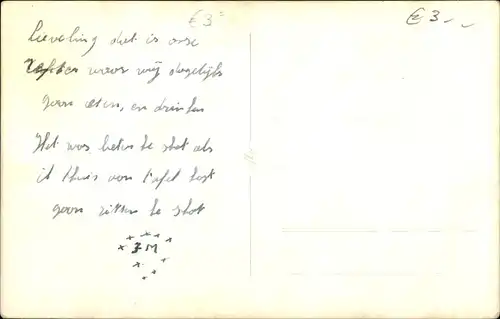 € 3=
€ 3--
Lieveling dat is onze
waar wij dagelijks
gaan eten, en drinken
Het was beter te stot als
ik thuis aan tafel kost
gaan zitten te stot
J M